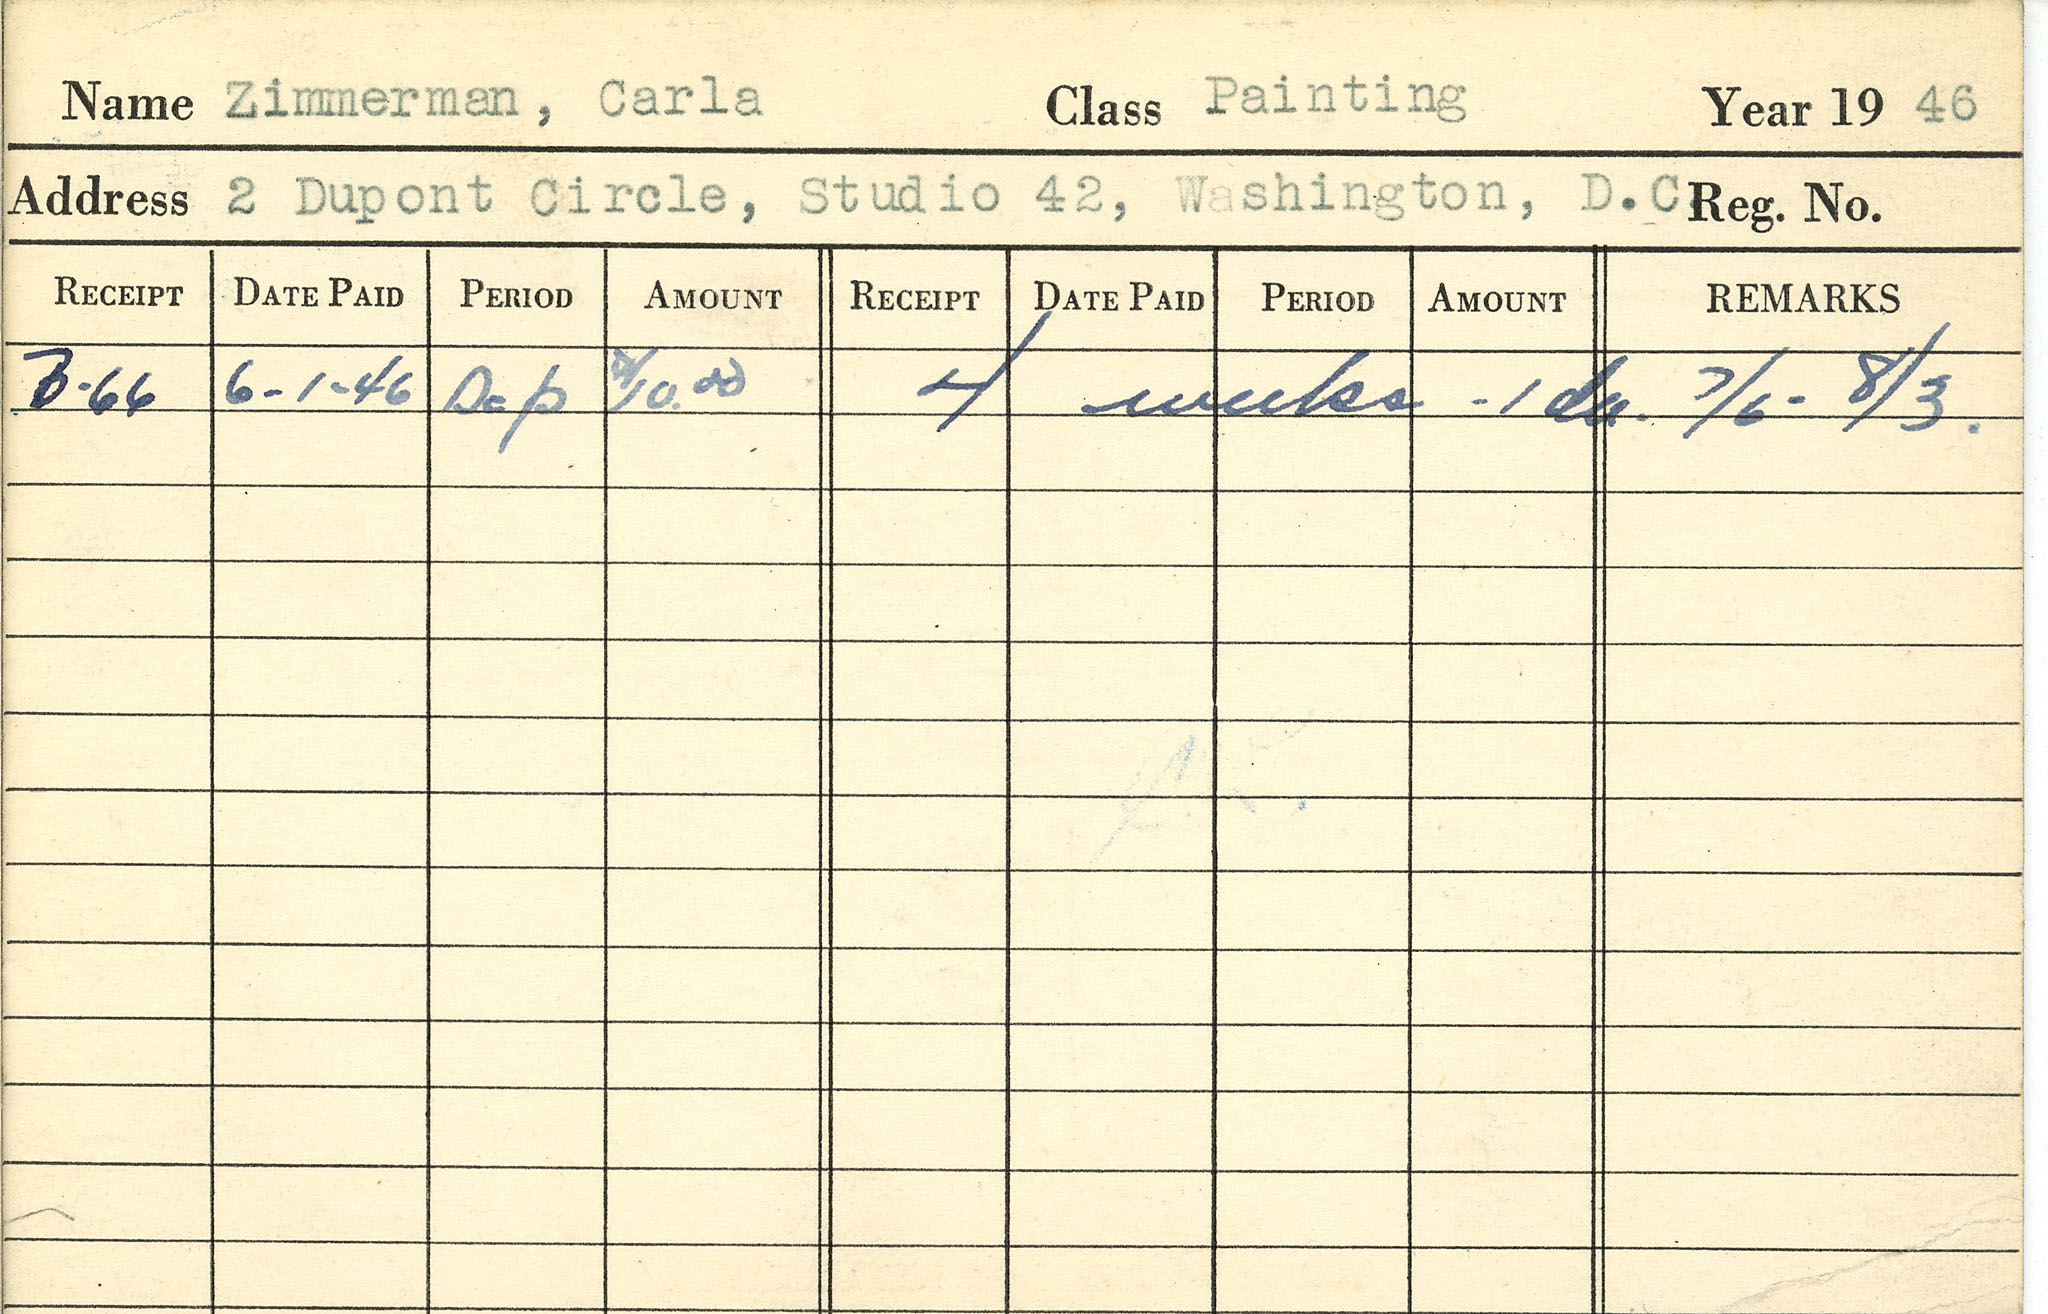 Name Zimmerman, Carla Class Painting Year 19 46
Address 2 Dupont Circle, Studio 42, Washington, D.C. Reg. No.
RECEIPT DATE PAID PERIOD AMOUNT RECEIPT DATE PAID PERIOD AMOUNT REMARKS
B-66 6-1-46 Dep $10.00 4 weeks - 1 da. 7/6 - 8/3.